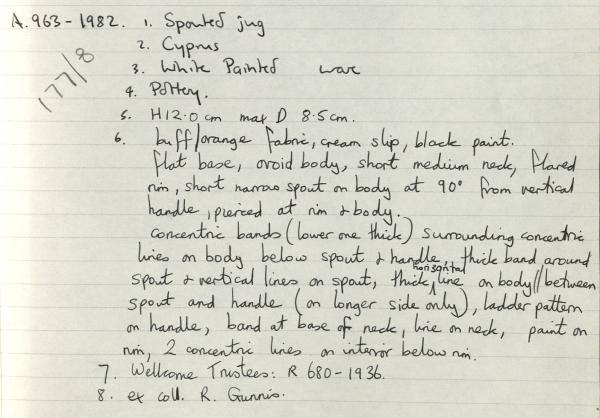 A.963-1982. 1. Spouted jug
177/8
2. Cyprus
3. White Painted ware
4. Pottery.
5. H12.0cm max D 8.5cm.
6. buff/orange fabric, cream slip, black paint.
flat base, ovoid body, short medium neck, flared
rim, short narrow spout on body at 90° from vertical
handle, pierced at rim & body.
concentric bands (lower one thick) surrounding concentric
lines on body below spout & handle, thick band around
spout & vertical lines on spout, thick, horizontal line on body // between
spout and handle (on longer side only), ladder pattern
on handle, band at base of neck, line on neck, paint on
rim, 2 concentric lines on interior below rim.
7. Wellcome Trustees: R 680-1936.
8. ex coll. R. Gunnis.